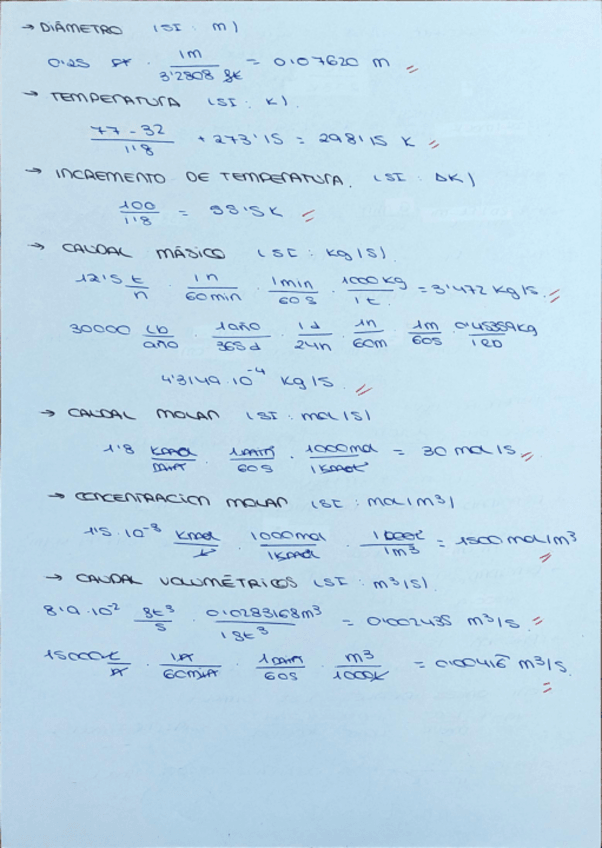 → DIÁMETRO (SI : m)
0'25 ft · 1m / 3'2808 ft = 0'07620 m
→ TEMPERATURA (SI : K).
77 - 32 / 1'8 + 273'15 = 298'15 K
→ INCREMENTO DE TEMPERATURA. (SI : ΔK)
100 / 1'8 = 55'5 K
→ CAUDAL MÁSICO (SI : Kg/S).
12'5 t/h · 1h / 60min · 1min / 60s · 1000 Kg / 1t = 3'472 Kg/S.
30000 Lb/año · 1año / 365d · 1d / 24h · 1h / 60m · 1m / 60s · 0'45359Kg / 1Lb
4'3149·10⁻⁴ Kg/S.
→ CAUDAL MOLAR (SI : mol/S)
1'8 Kmol/min · 1min / 60s · 1000mol / 1Kmol = 30 mol/S
→ CONCENTRACIÓN MOLAR (SI : mol/m³)
1'5·10⁻³ Kmol/L · 1000mol / 1Kmol · 1000L / 1m³ = 1500 mol/m³
→ CAUDAL VOLUMÉTRICOS (SI : m³/S).
8'9·10⁻² ft³/s · 0'0283168m³ / 1ft³ = 0'002435 m³/S
15000 L/h · 1h / 60min · 1min / 60s · m³ / 1000L = 0'00416 m³/S.